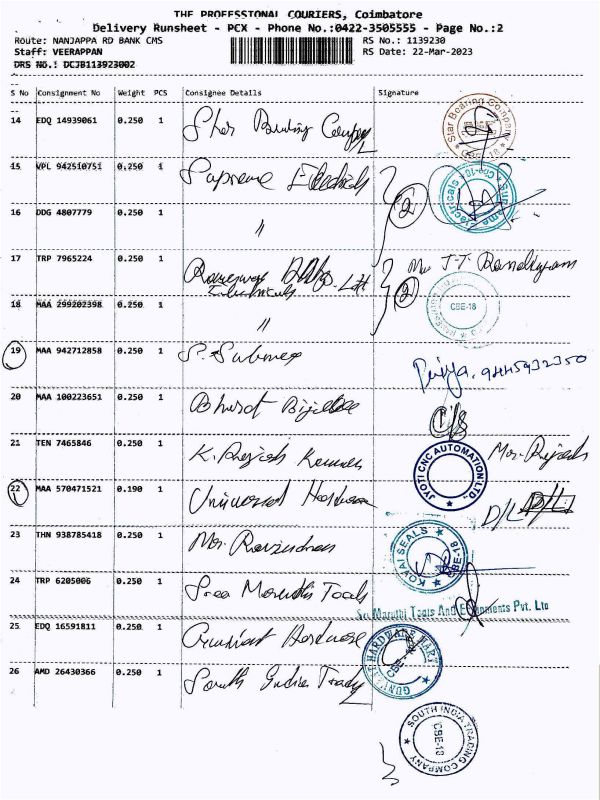 THE PROFESSIONAL COURIERS, Coimbatore
Delivery Runsheet - PCX - Phone No.:0422-3505555 - Page No.:2
Route: NANJAPPA RD BANK CMS RS No.: 1139230
Staff: VEERAPPAN RS Date: 22-Mar-2023
DRS No.: DCJB113923002
S No Consignment No Weight PCS Consignee Details Signature
14 EDQ 14939061 0.250 1 Star Bearing Company
Star Bearing Company CBE-18
15 VPL 942510751 0.250 1 Supreme Electricals 2
Supreme Electricals Cbe-18
16 DDG 4807779 0.250 1 "
17 TRP 7965224 0.250 1 P. Ltd 2
18 MAA 299202398 0.250 1 "
CBE-18
19 MAA 942712858 0.250 1 S. Submex Priya. 9445932350
20 MAA 100223651 0.250 1 Bharat Bijlee C/S
21 TEN 7465846 0.250 1 K. Rajesh Kannan Mr. Rajesh
JYOTI CNC AUTOMATION LTD.
22 MAA 570471521 0.190 1 Universal Hardware D/L D/L
23 THN 938785418 0.250 1 Mr. Ravindran
KOVAI SEALS CBE-18
24 TRP 6205006 0.250 1 Sree Maruthi Tools
Sri Maruthi Tools And Equipments Pvt. Ltd
25 EDQ 16591811 0.250 1 Gunniart Hardware
HARDWARE MART CBE-18
26 AMD 26430366 0.250 1 South India Trady
SOUTH INDIA TRADING COMPANY CBE-18